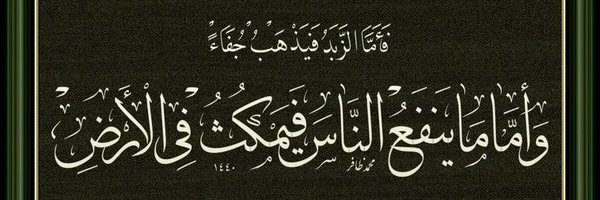 فَأَمَّا الزَّبَدُ فَيَذْهَبُ جُفَاءً
وَأَمَّا مَا يَنفَعُ النَّاسَ فَيَمْكُثُ فِي الْأَرْضِ
محمد ظافر ١٤٤٠